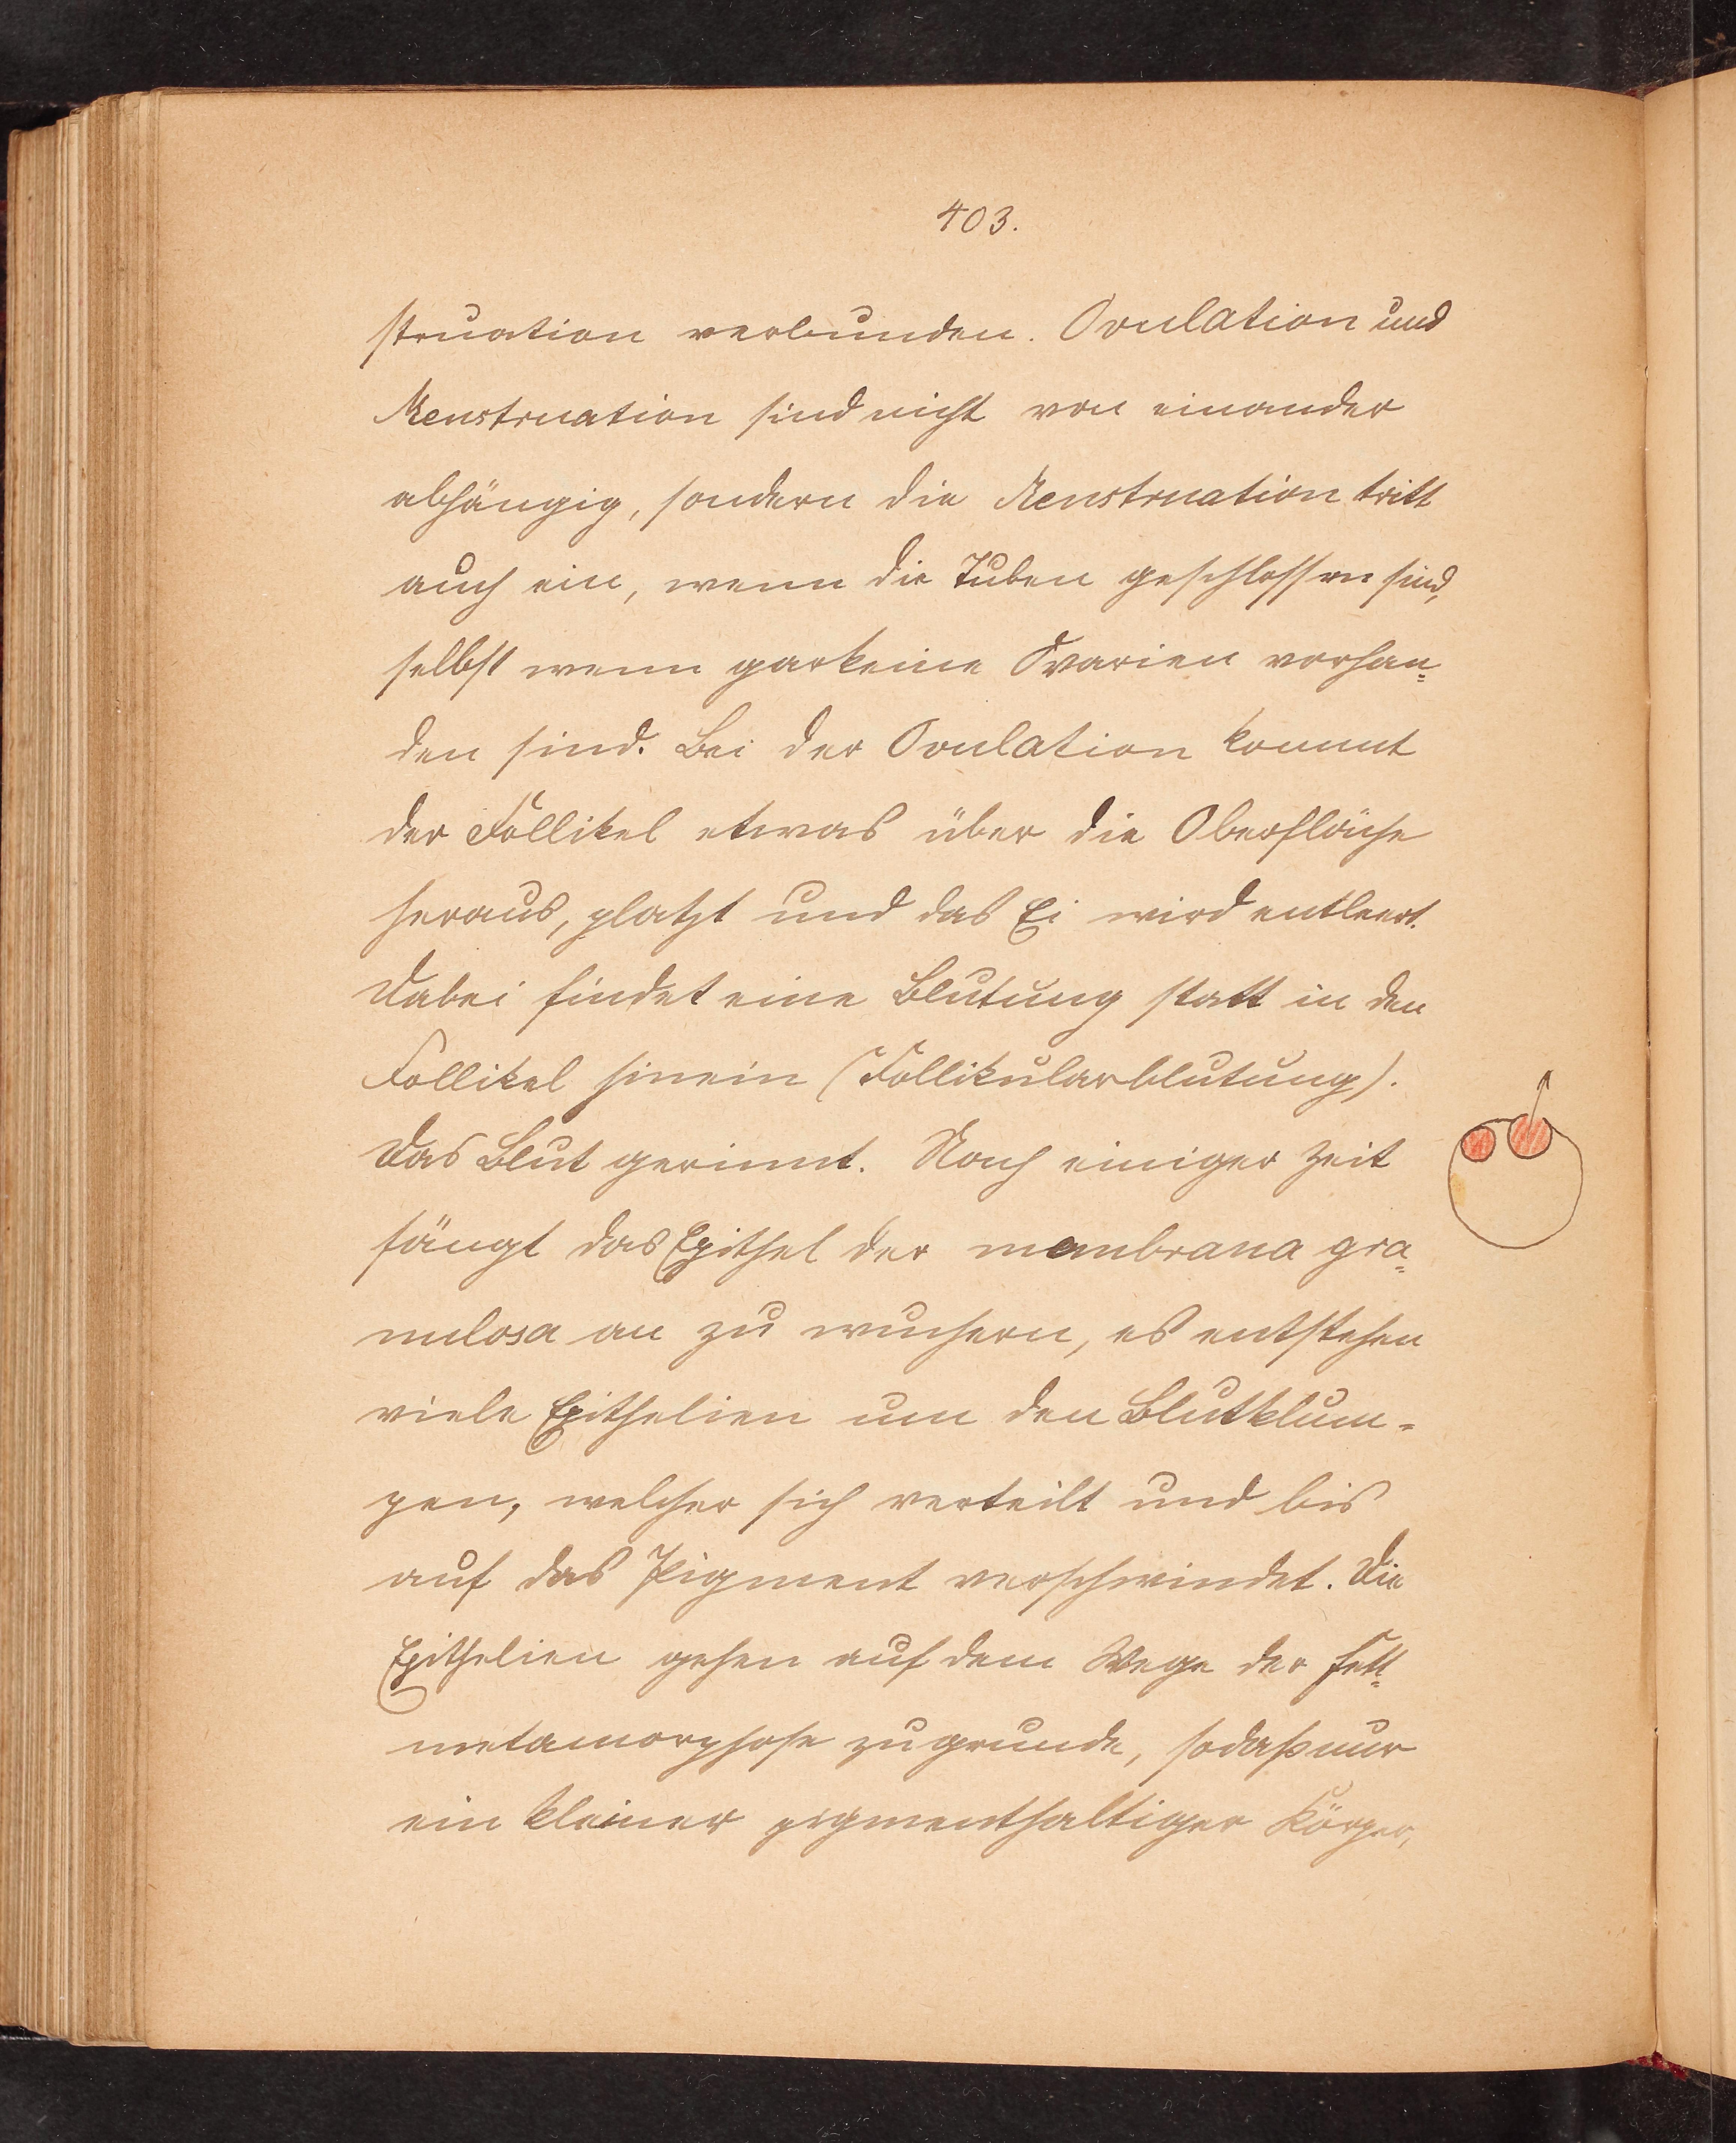 403.
struation verbunden. Ovulation und
Menstruation sind nicht von einander
abhängig, sondern die Menstruation tritt
auch ein, wenn die Tuben geschlossen sind,
selbst wenn garkeine Ovarien vorhan=
den sind. Bei der Ovulation kommt
der Follikel etwas über die Oberfläche
heraus, platzt und das Ei wird entleert.
Dabei findet eine Blutung statt in den
Follikel hinein (Follikularblutung).
Das Blut gerinnt. Nach einiger Zeit
fängt das Epithel der membrana gra=
nulosa an zu wuchern, es entstehen
viele Epithelien um den Blutklum=
pen, welcher sich verteilt und bis
auf das Pigment verschwindet. Die
Epithelien gehen auf dem Wege der Fett=
metamorphose zugrunde, sodaß nur
ein kleiner pigmenthaltiger Körper,